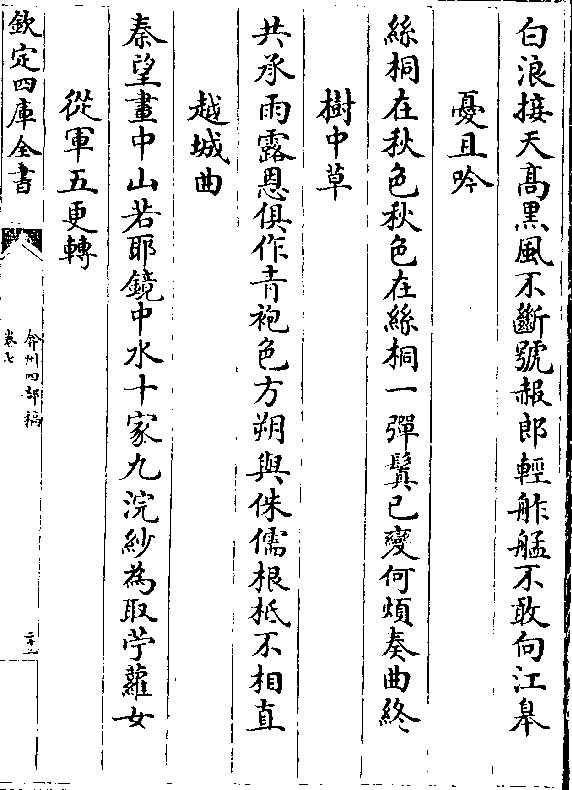 白浪接天高黒風不斷號報郎輕舴艋不敢向江皋
憂且吟
絲桐在秋色秋色在絲桐一彈鬢已變何煩奏曲終
樹中草
共承雨露恩俱作青袍色方朔與侏儒根柢不相直
越城曲
秦望畫中山若耶鏡中水十家九浣紗為取苧蘿女
從軍五更轉
欽定四庫全書
弇州四部稿
卷七
二十二